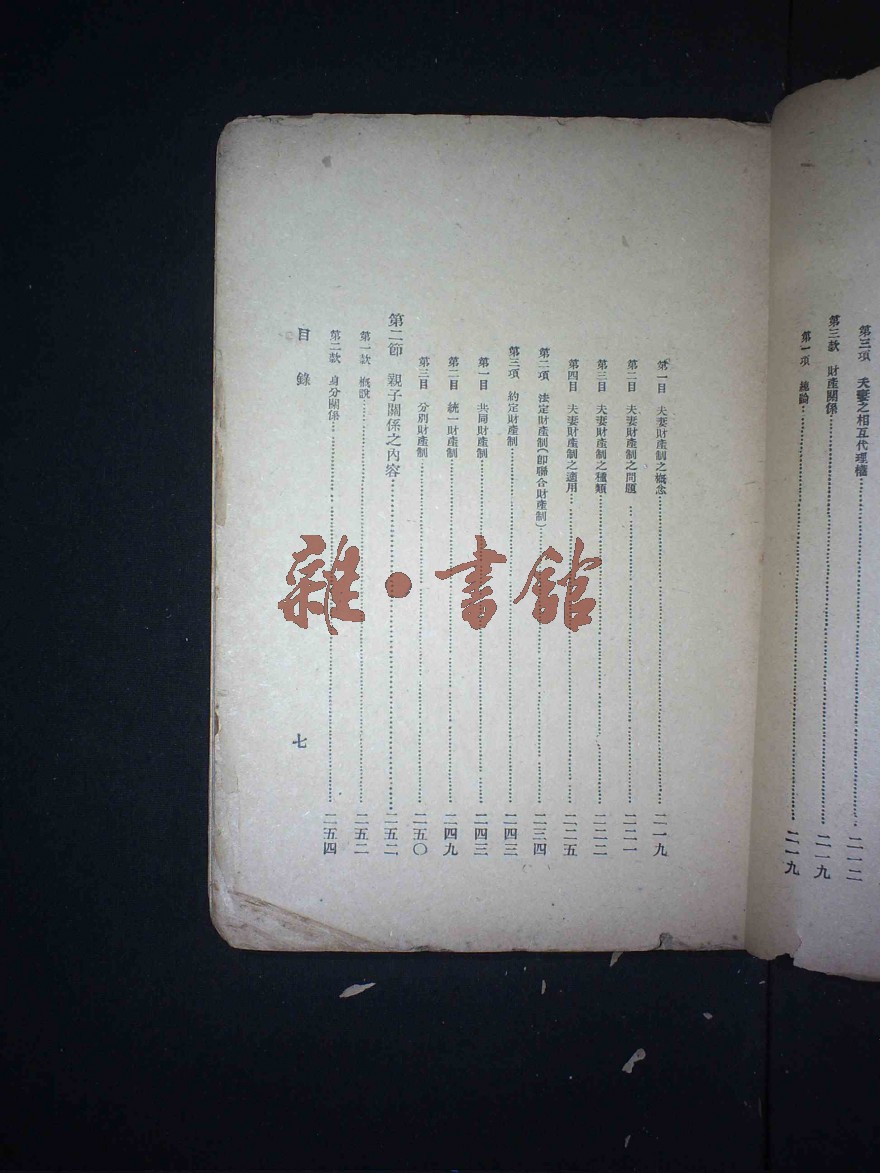 第三項　夫妻之相互代理權……二一二
第三款　財產關係……二一九
第一項　總論……二一九
第一目　夫妻財產制之概念……二一九
第二目　夫妻財產制之問題……二二一
第三目　夫妻財產制之種類……二二二
第四目　夫妻財產制之適用……二二五
第二項　法定財產制(卽聯合財產制)……二三四
第三項　約定財產制……二四三
第一目　共同財產制……二四三
第二目　統一財產制……二四九
第三目　分別財產制……二五〇
第二節　親子關係之內容……二五二
第一款　概說……二五二
第二款　身分關係……二五四
目　錄
七
雜·書館